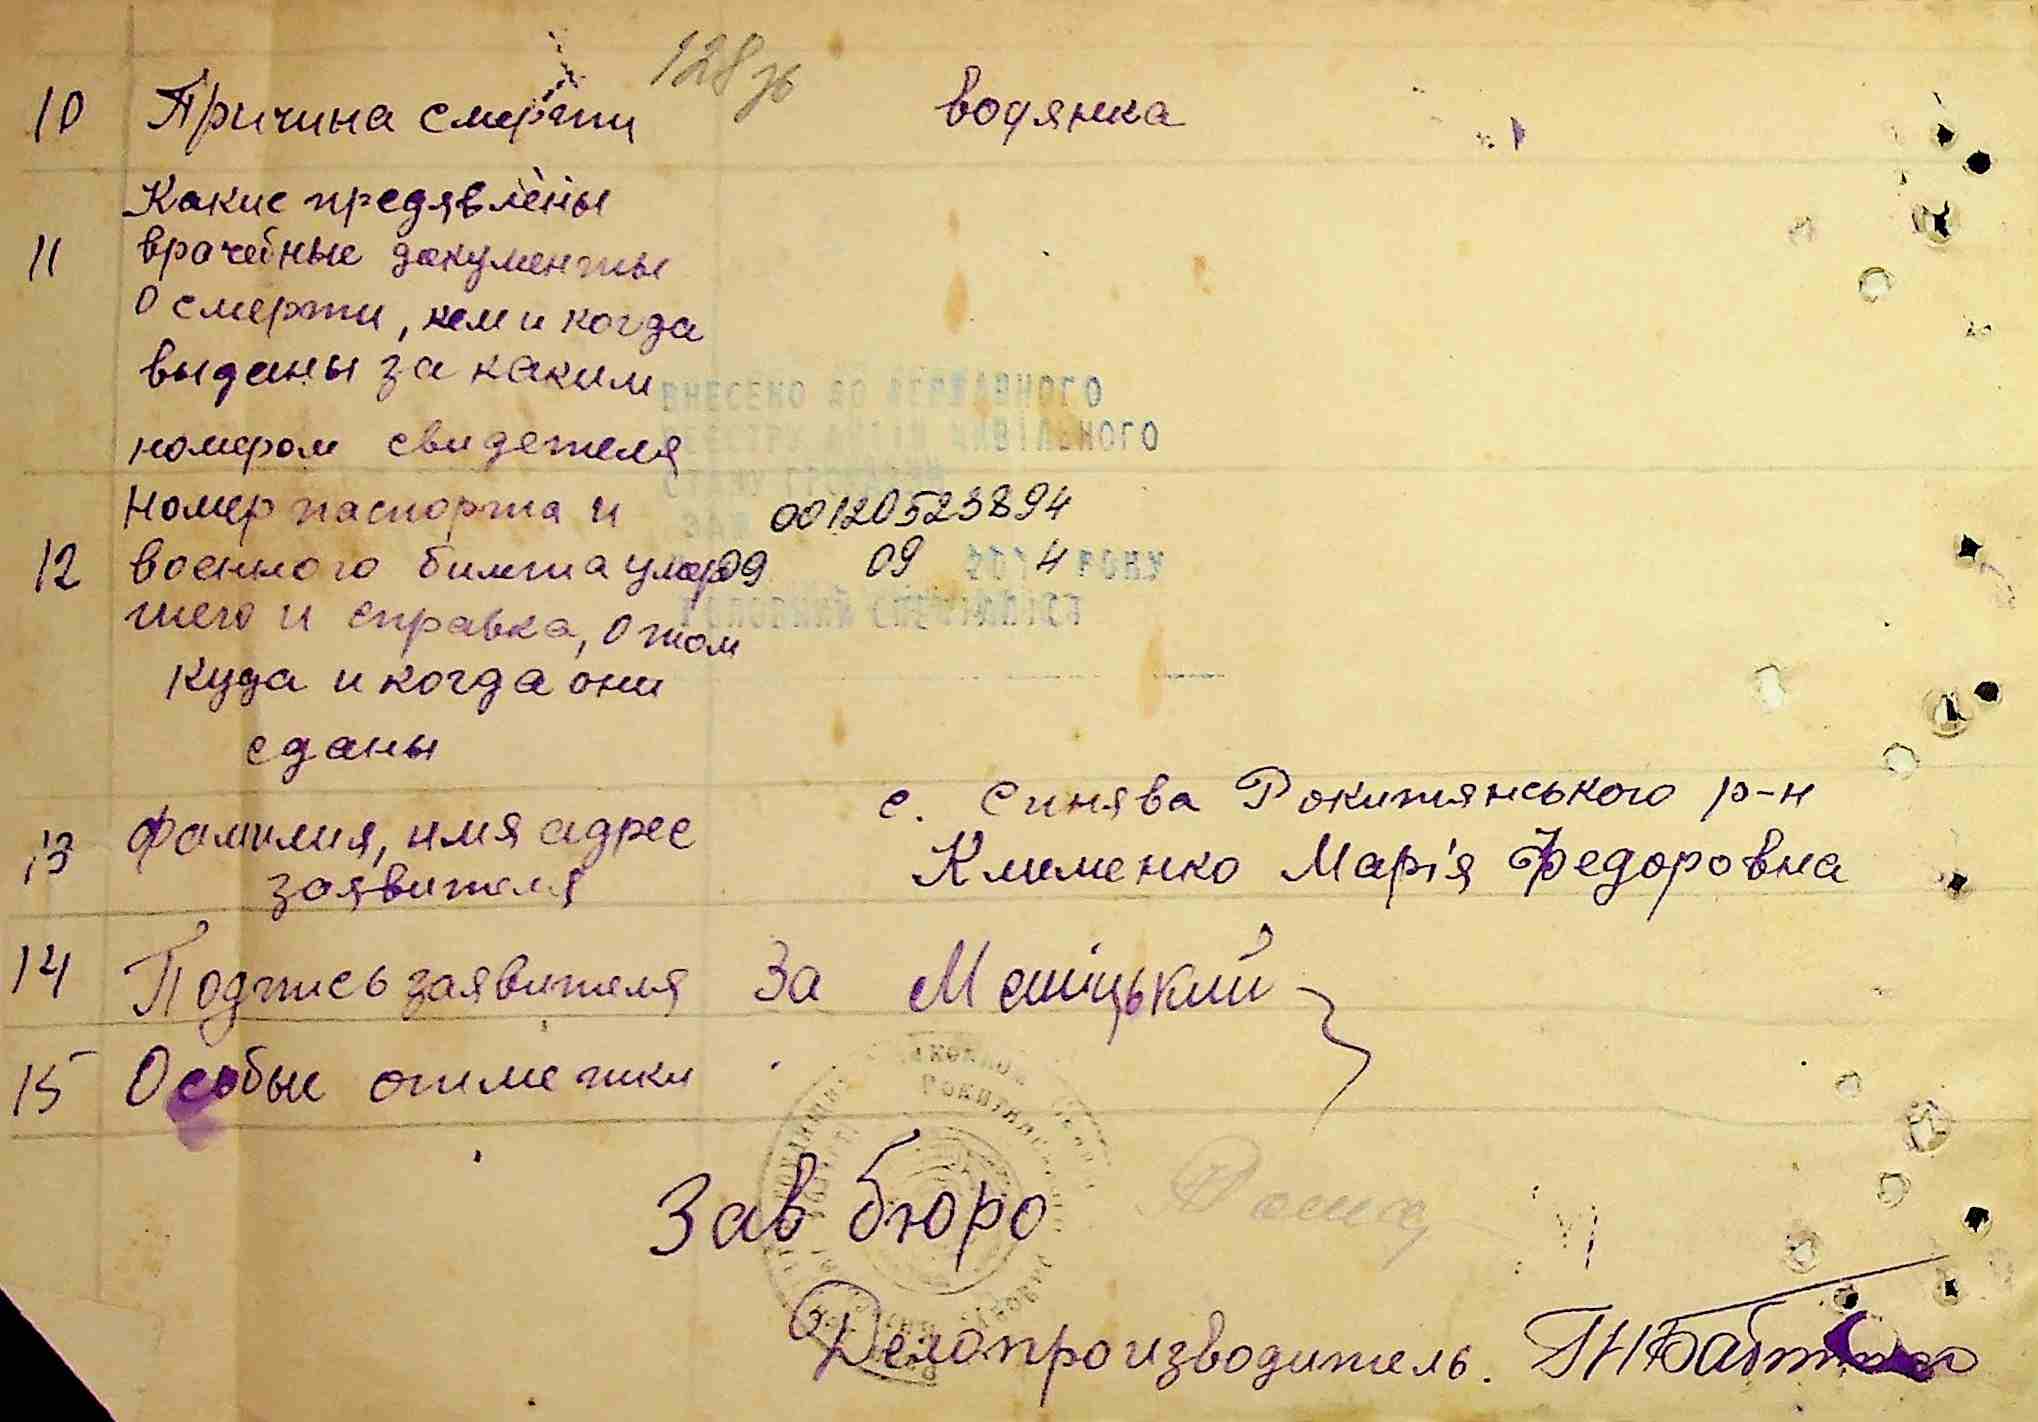 128 зв
10 Причина смерти водянка
Какие предявлены
11 врачебные документы
о смерти, кем и когда
выданы за каким
номером свидетеля
ВНЕСЕНО ДО ДЕРЖАВНОГО
РЕЄСТРУ АКТІВ ЦИВІЛЬНОГО
СТАНУ ГРОМАДЯН
Номер паспорта и 00120523894
12 военного билета умер 09 09 2014 РОКУ
шего и справка, о том
ГОЛОВНИЙ СПЕЦІАЛІСТ
куда и когда они
сданы
с. Синява Рокитянського р-н
13 Фамилия, имя адрес
заявителя Клименко Марія Федоровна
14 Подпись заявителя За
15 Особые отметки
Зав бюро
Делопроизводитель.